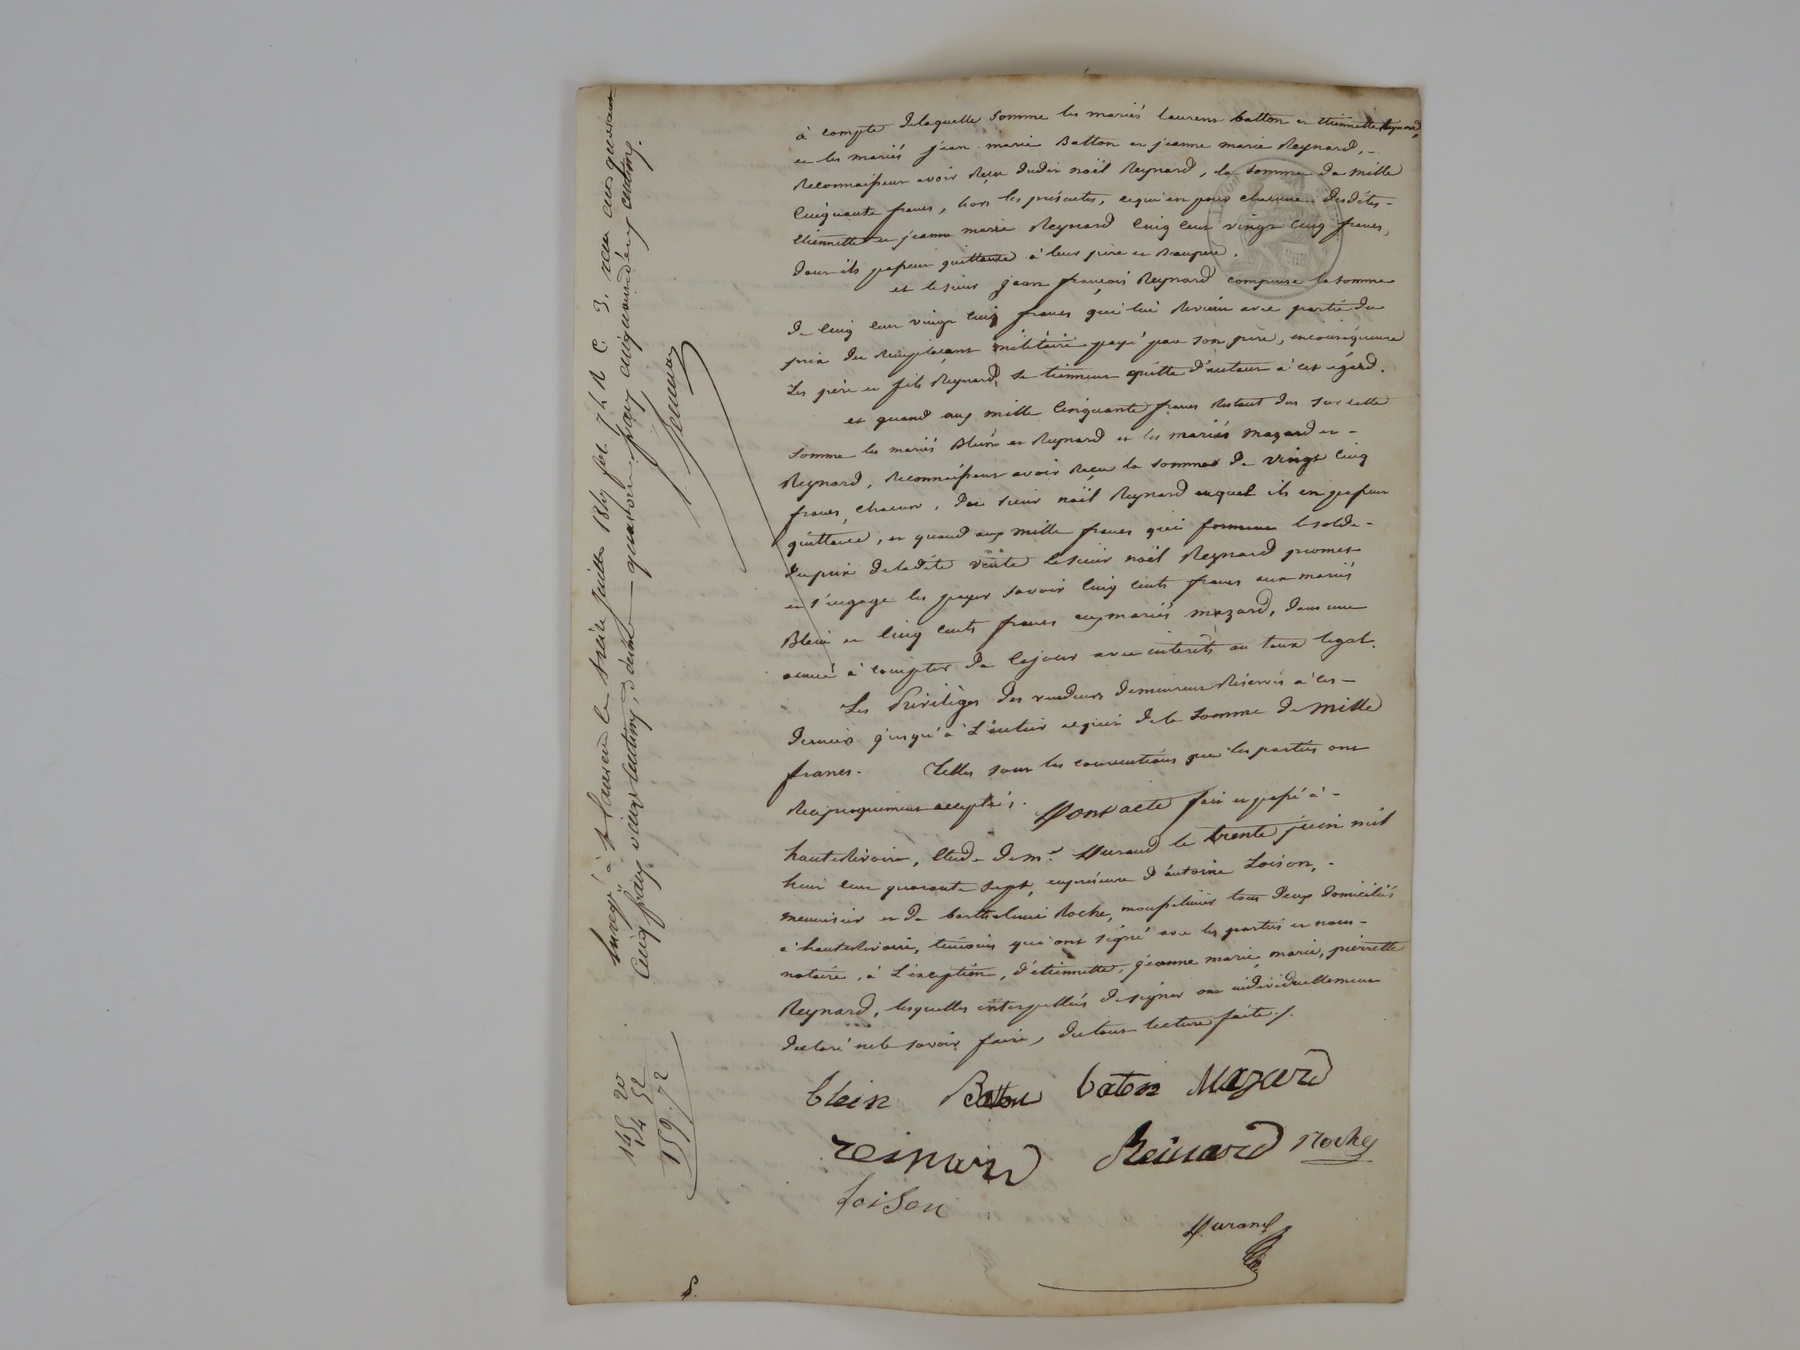 à compte delaquelle somme les mariés laurent batton et étiennette Reynard,
et les mariés jean marie Batton et jeanne marie Reynard,
Reconnaissent avoir Reçu dudit noël Reynard, la somme de mille
Cinquante francs, hors les présentes, cequi en pour chacune desdites
étiennette et jeanne marie Reynard Cinq cent vingt Cinq francs,
dont ils passent quittance à leur père et Beaupère.
et le sieur jean françois Reynard compense la somme
de Cinq cent vingt Cinq francs qui lui Revient avec partie du
prix du Remplaçant militaire payé par son père, enconséquence
Les père et fils Reynard, se tiennent quitte d'autant à cet égard.
et quand aux mille Cinquante francs Restant dus sur cette
somme les mariés Blein et Reynard et les mariés Mazard et
Reynard, Reconnaissent avoir Reçu la somme de vingt Cinq
francs, chacun, du sieur noël Reynard auquel ils en passent
quittance, et quand aux mille francs qui forment le solde
du prix deladite vente le sieur noël Reynard promet
et s'engage les payer savoir Cinq Cents francs aux mariés
Blein et Cinq Cents francs aux mariés Mazard, dans une
année à compter de cejour avec intérêts au taux légal.
Les Privilèges des vendeurs demeurent Réservés à ces
derniers jusqu'à L'entier acquit de la somme de Mille
francs. Telles sont les conventions que les parties ont
Réciproquement acceptées. Dont acte fait et passé à
hauterivoire, étude de me. Durand le trente juin mil
huit cent quarante sept, en présence d'antoine Loison,
menuisier et de barthelemi Roche, tous deux domiciliés
à hauterivoire, témoins qui ont signé avec les parties et nous
notaire, à L'exception, d'étiennette, jeanne marie, marie, pierrette
Reynard, lesquelles interpellées de signer ont individuellement
déclaré nele savoir faire, du tout lecture faite /.
blein Batton baton Mazard
reinard Reinard Roche
Loison
Durand
Enregé à St Laurent le treize juillet 1847 fol. 74 R C. 3. reçu cent quarante
Cinq francs vingt centimes, décime quatorze francs cinquante deux centimes.
145 20
14 52
159.72